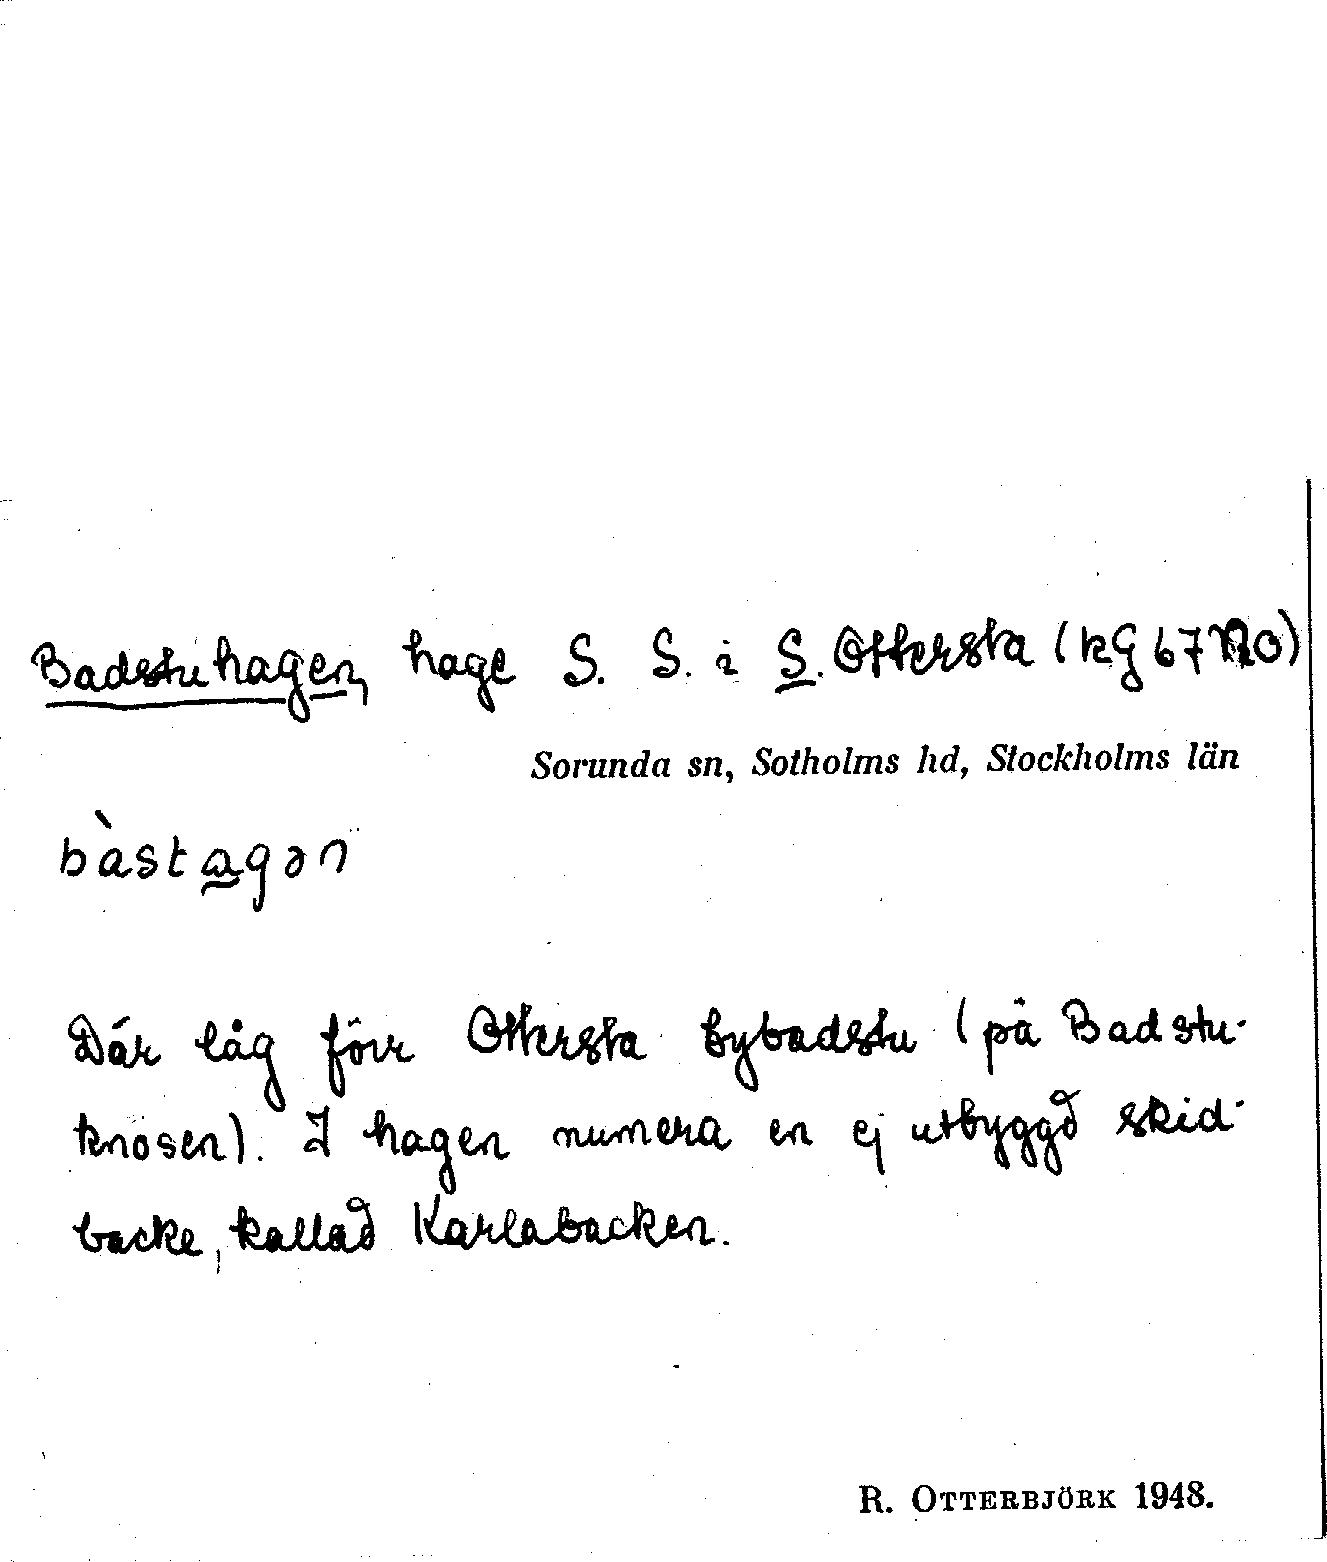 Badstuhagen, hage S. S. i S. Ottersta (kG 67 NO)
Sorunda sn, Sotholms hd, Stockholms län
bàstagən
Där låg förr Ottersta bybadstu (på Badstu-
knösen). I hagen numera en ej utbyggd skid-
backe, kallad Karlabacken.
R. OTTERBJÖRK 1948.